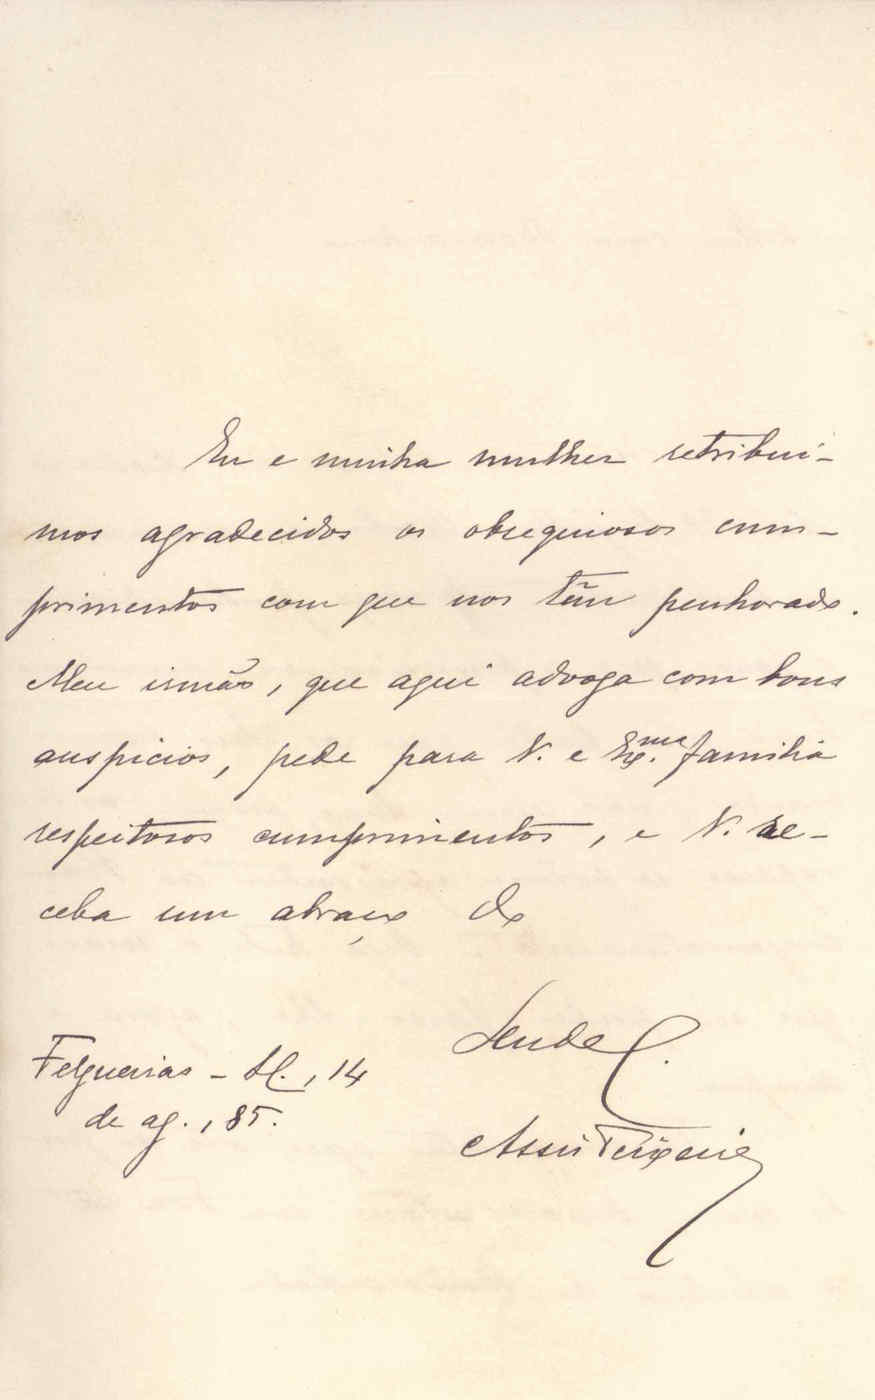 Eu e minha mulher retribui-
mos agradecidos os obsequiosos cum-
primentos com que nos tẽm penhorado.
Meu irmão, que aqui advoga com bons
auspicios, pede para V. e Ex.ma familia
respeitosos cumprimentos, e V. re-
ceba um abraço do
de C.
Teixeira
Felgueiras - 14
de ag., 85.